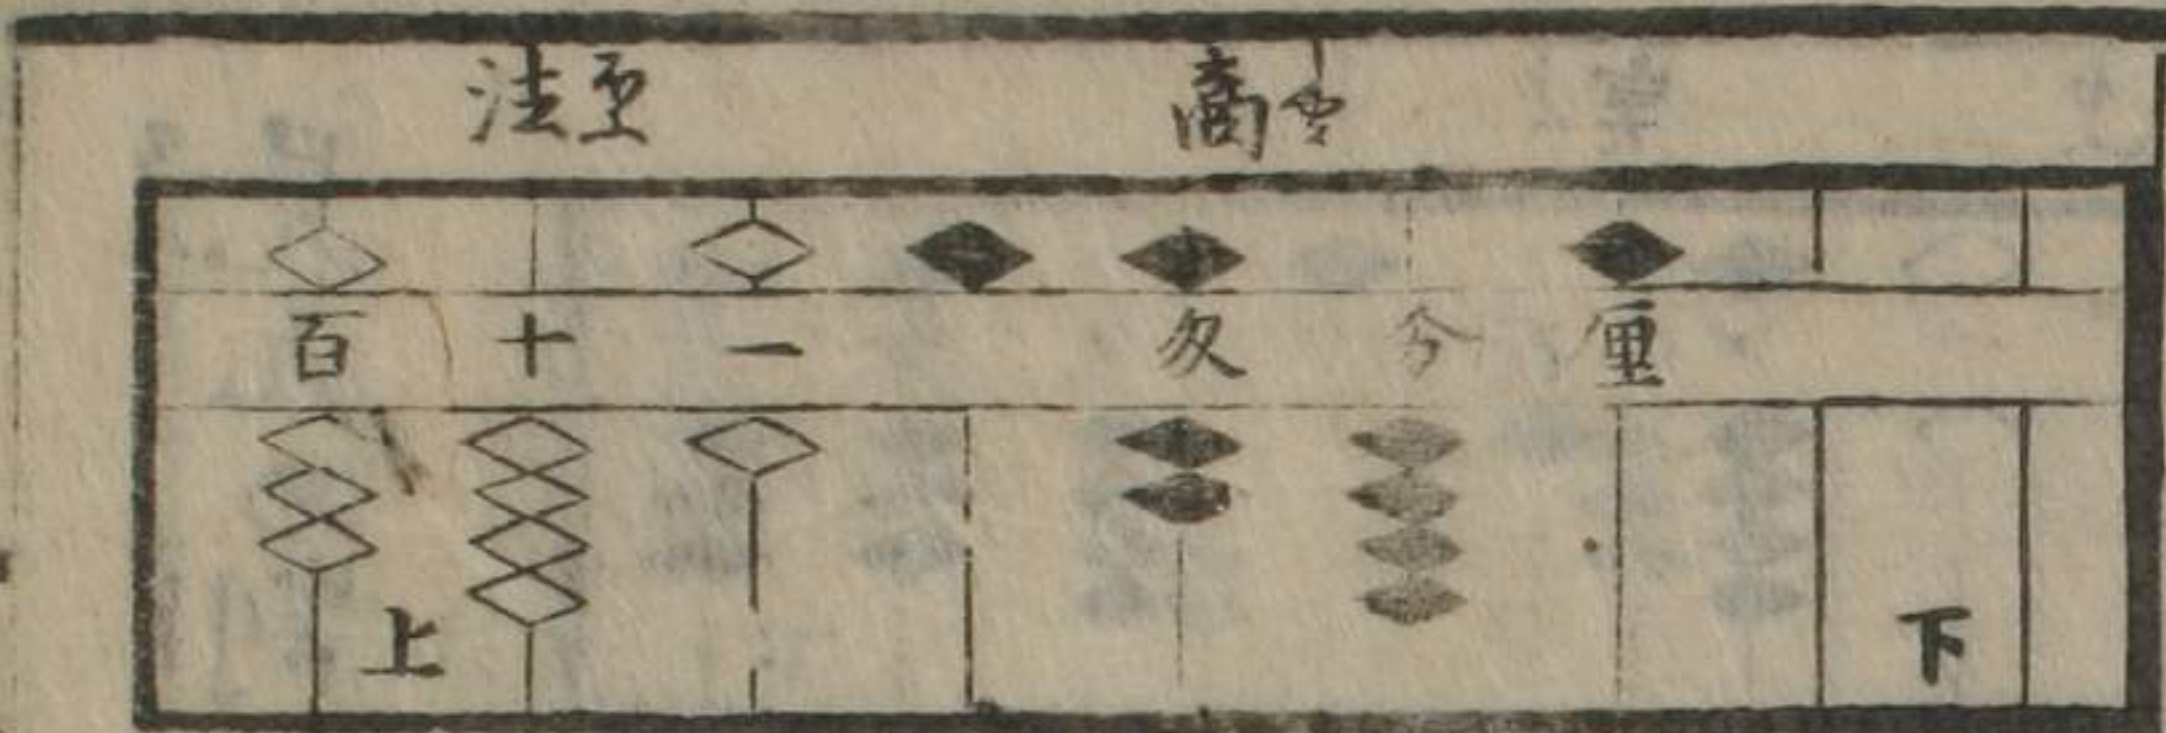 法
商
百 十 一 匁 分 厘
上 下